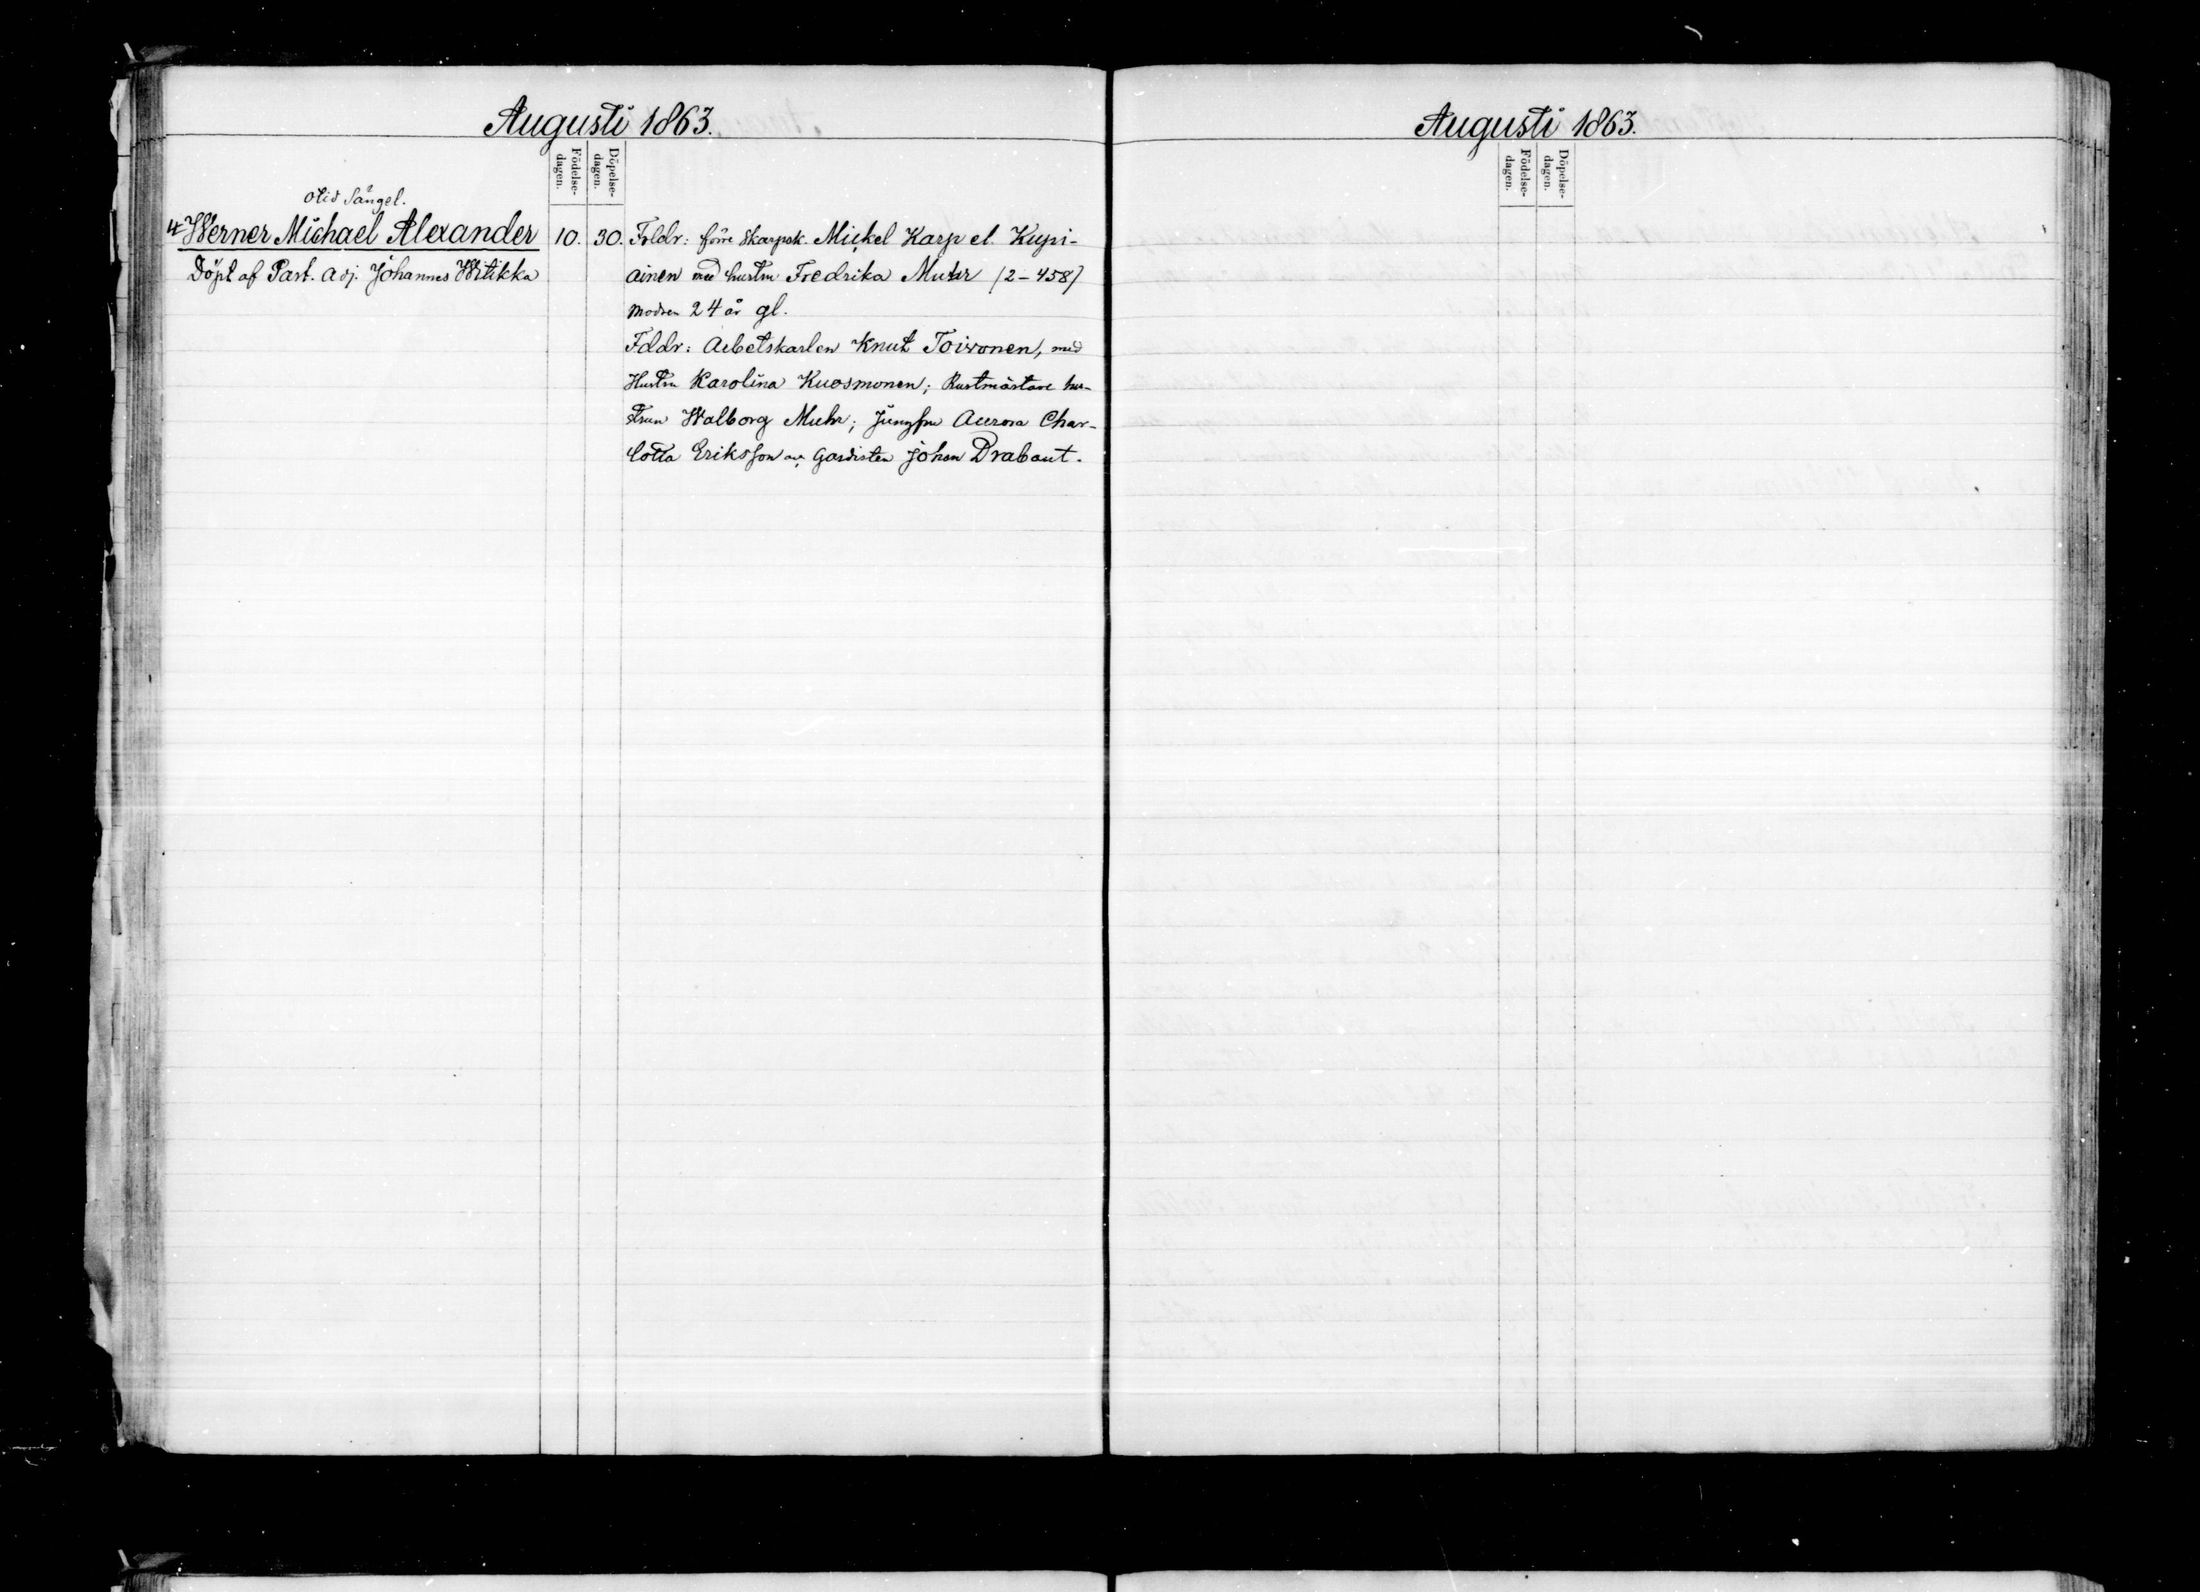 Augusti 1863.
Födelse-
dagen.
Döpelse-
dagen.
vid Sängel.
4 Werner Michael Alexander 10. 30. Frldr: förre Skarpsk. Mickel Karp el. Kupi-
Döpt af Past. Adj. Johannes Witikka ainen med hustru Fredrika Muhr (2-458)
Modren 24 år gl.
Fddr: Arbetskarlen Knut Toivonen, med
Hustru Karolina Kuosmonen; Rustmästare hu-
strun Walborg Muhr; Jungfru Aurora Char-
lotta Eriksson Gardisten Johan Drabant.
Augusti 1863.
Födelse-
dagen.
Döpelse-
dagen.